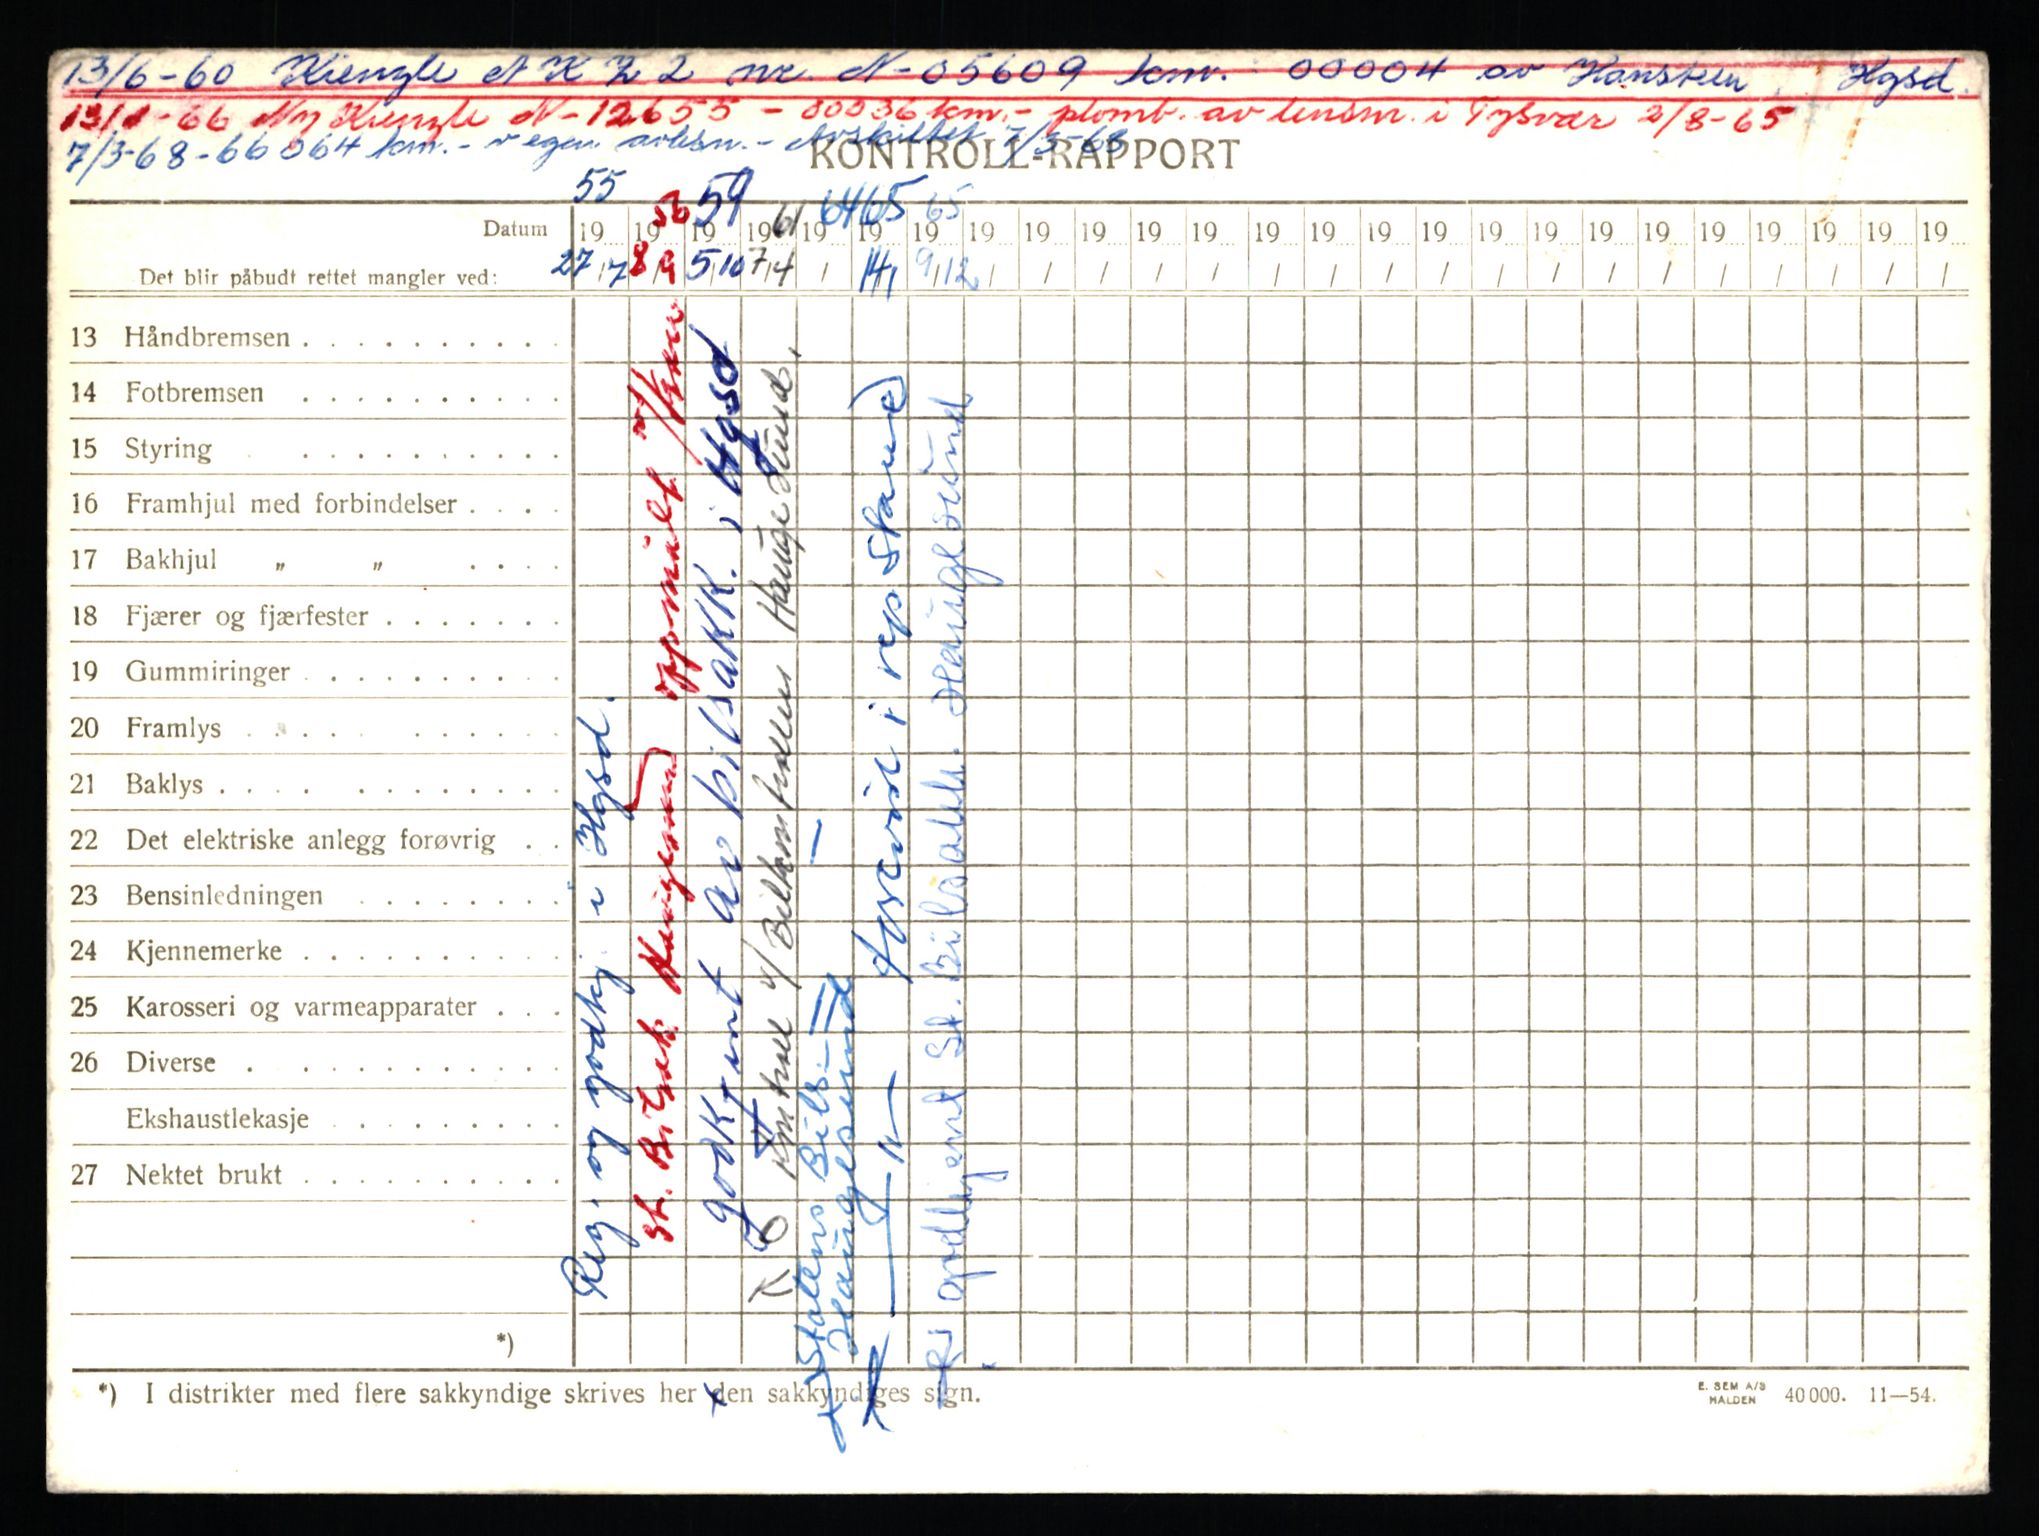 13/6-60 Kienzle N K Z 2 nr. N-05609 km. 00004 av Hanstein, Hgsd.
13/1-66 Ny Kienzle N-12655 - 00036 km. - plomb. av lensm. i Tysvær 2/8-65
7/3-68 - 66064 km. - v egen avlesn. - Avskiltet 7/3-68
KONTROLL-RAPPORT
55 56 59 61 64 65 65
Datum 19 19 19 19 19 19 19 19 19 19 19 19 19 19 19 19 19 19 19 19 19 19 19 19 19
Det blir påbudt rettet mangler ved: 27/7 8/9 5/10 7/4 / 14/1 9/12 / / / / / / / / / / / / / / / / / /
13 Håndbremsen
14 Fotbremsen
15 Styring
16 Framhjul med forbindelser
17 Bakhjul „ „
18 Fjærer og fjærfester
19 Gummiringer
20 Framlys
21 Baklys
22 Det elektriske anlegg forøvrig
23 Bensinledningen
24 Kjennemerke
25 Karosseri og varmeapparater
26 Diverse
Ekshaustlekasje
27 Nektet brukt
*)
Reg. og godkj. i Hgsd.
St. Bilsak Haugesund
godkjent av bilsakk. i Hgsd
Kontroll v/ Biltilsynet Haugesund.
Statens Bils. —
Haugesund
— " —
i rep stand
Rs godkjent St. Bilsakk. Haugesund
*) I distrikter med flere sakkyndige skrives her den sakkyndiges sign.
E. SEM A/S HALDEN 40 000. 11—54.